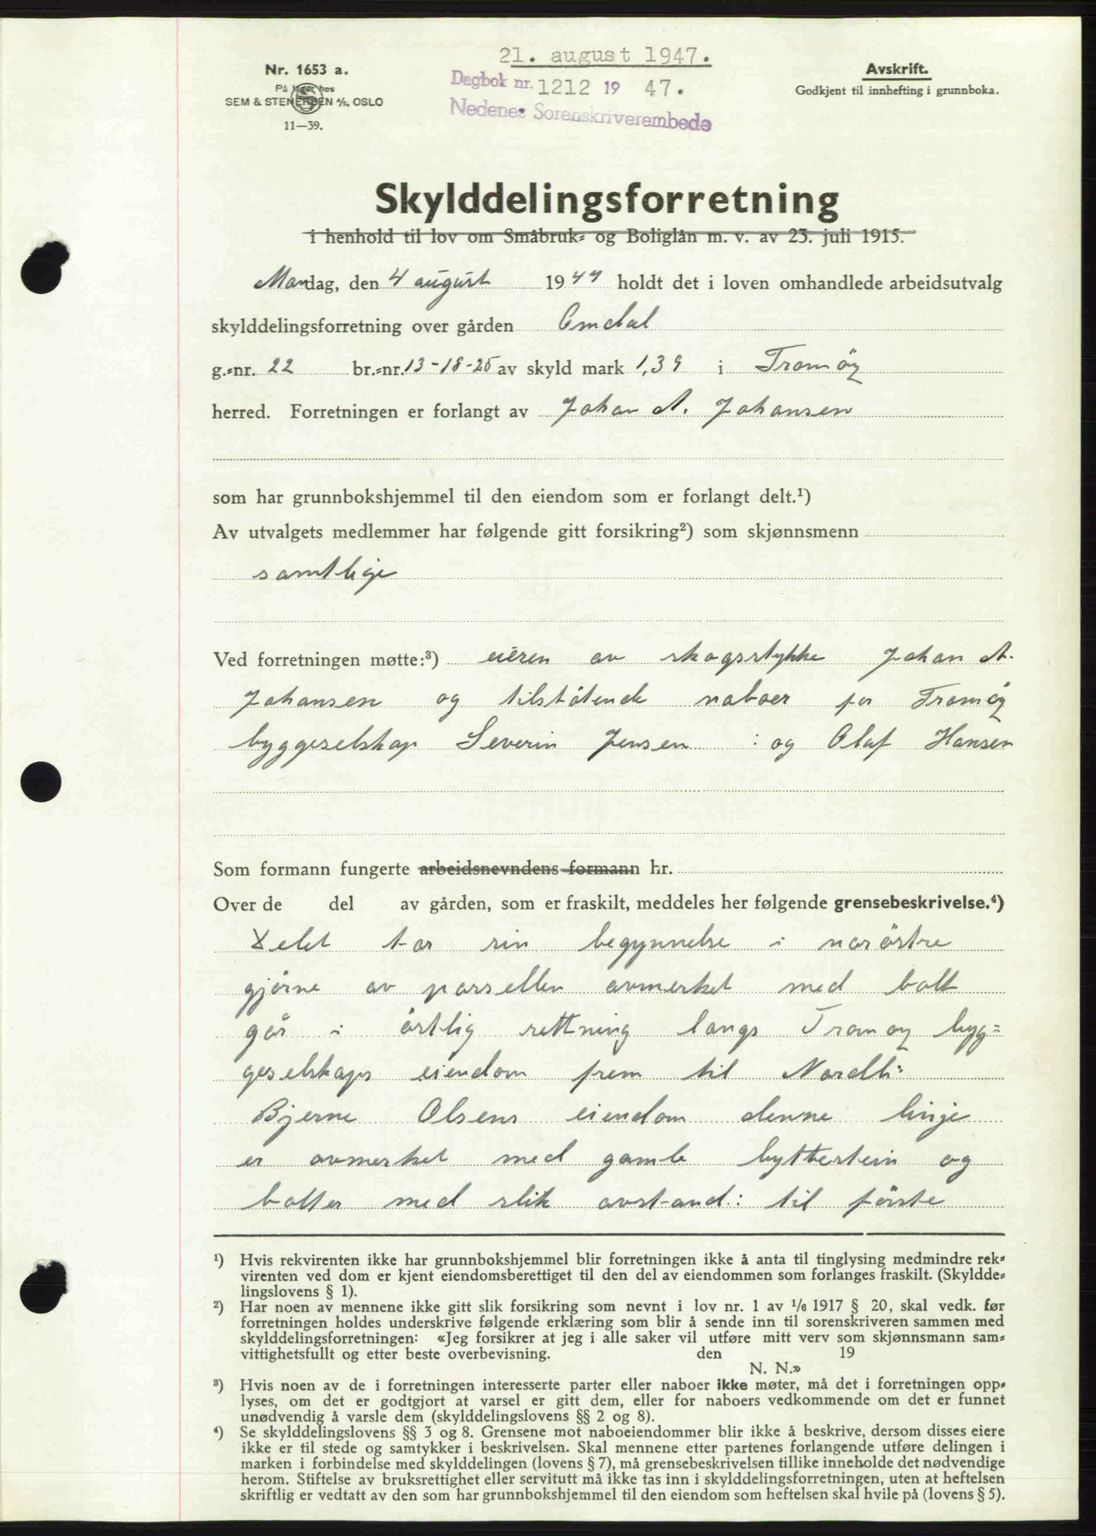 21. august 1947.
Nr. 1653 a.
På lager hos
SEM & STENERSEN A/S, OSLO
11—39.
Dagbok nr. 1212 19 47.
Nedenes Sorenskriverembede
Avskrift.
Godkjent til innhefting i grunnboka.
Skylddelingsforretning
i henhold til lov om Småbruk- og Boliglån m. v. av 23. juli 1915.
Mandag, den 4 august 1947 holdt det i loven omhandlede arbeidsutvalg
skylddelingsforretning over gården Omdal
g.-nr. 22 br.-nr. 13-18-25 av skyld mark 1,39 i Tromöy
herred. Forretningen er forlangt av Johan A. Johansen
som har grunnbokshjemmel til den eiendom som er forlangt delt.¹)
Av utvalgets medlemmer har følgende gitt forsikring²) som skjønnsmenn
samtlige
Ved forretningen møtte:³) eieren av skogsstykke Johan A.
Johansen og tilstötende naboer for Tromöy
byggeselskap Severin Jensen : og Olaf Hansen
Som formann fungerte arbeidsnevndens formann hr.
Over de del av gården, som er fraskilt, meddeles her følgende grensebeskrivelse.⁴)
Delet tar sin begynnelse i noröstre
gjörne av parsellen avmerket med bolt
går i östlig rettning langs Tromoy byg=
geselskaps eiendom frem til Nordli:
Bjerne Olsens eiendom denne linje
er avmerket med gamle byttestein og
bolter med slik avstand: til förste
¹) Hvis rekvirenten ikke har grunnbokshjemmel blir forretningen ikke å anta til tinglysing medmindre rek-
virenten ved dom er kjent eiendomsberettiget til den del av eiendommen som forlanges fraskilt. (Skyldde-
lingslovens § 1).
²) Har noen av mennene ikke gitt slik forsikring som nevnt i lov nr. 1 av ¹/₆ 1917 § 20, skal vedk. før
forretningen holdes underskrive følgende erklæring som blir å sende inn til sorenskriveren sammen med
skylddelingsforretningen: «Jeg forsikrer at jeg i alle saker vil utføre mitt verv som skjønnsmann sam-
vittighetsfullt og etter beste overbevisning. den 19
N. N.»
³) Hvis noen av de i forretningen interesserte parter eller naboer ikke møter, må det i forretningen opp-
lyses, om det er godtgjort at varsel er gitt dem, eller for naboers vedkommende om det er funnet
unødvendig å varsle dem (skylddelingslovens §§ 2 og 8).
⁴) Se skylddelingslovens §§ 3 og 8. Grensene mot naboeiendommer blir ikke å beskrive, dersom disses eiere
ikke er til stede og samtykker i beskrivelsen. Skal mennene etter partenes forlangende utføre delingen i
marken i forbindelse med skylddelingen (lovens § 7), må grensebeskrivelsen tillike inneholde det nødvendige
herom. Stiftelse av bruksrettighet eller servitutt må ikke tas inn i skylddelingsforretningen, uten at heftelsen
skriftlig er vedtatt av den som har grunnbokshjemmel til den eiendom som heftelsen skal hvile på (lovens § 5).